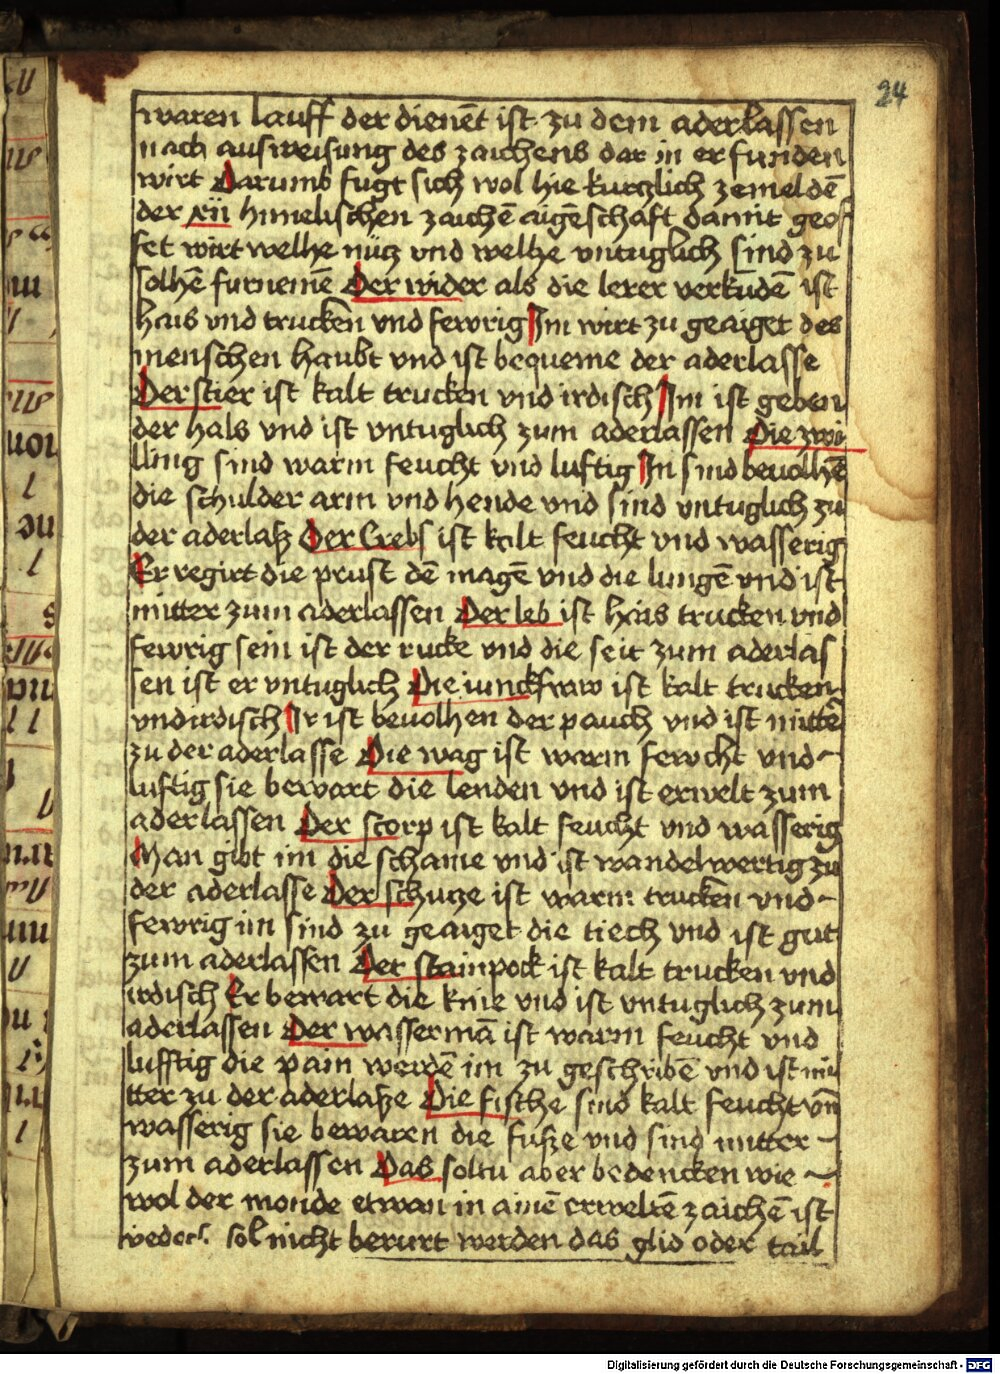 24
waren lauff der dienēt ist zu dem aderlassen
nach ausweisung des zaichens dar in er funden
wirt Darumb fugt sich wol hie kurczlich zemeldē
der xii himelischen zaichē aigēschaft damit geof
fet wirt welhe nücz vnd welhe vntuglich sind zu
solhē furnemē Der wider als die lerer verkūdē ist
hais vnd trucken vnd fewrig Im wirt zu geaiget des
menschen haubt vnd ist bequeme der aderlasse
Der stier ist kalt trucken vnd irdisch Im ist geben
der hals vnd ist vntuglich zum aderlassen Die zwi
lling sind warm feucht vnd luftig In sind beuolhē
die schulder arm vnd hende vnd sind vntuglich zu
der aderlaß Der Crebs ist kalt feucht vnd wasserig
Er regirt die prust dē magē vnd die lungē vnd ist
mitter zum aderlassen Der leb ist hais trucken vnd
fewrig sein ist der rucke vnd die seit zum aderlas
sen ist er vntuglich Die iunckfraw ist kalt trucken
vnd irdisch Ir ist beuolhen der pauch vnd ist mitte
zu der aderlasse Die wag ist warm fewcht vnd
luftig sie bewart die lenden vnd ist erwelt zum
aderlassen Der scorp ist kalt feucht vnd wasserig
Man gibt im die schame vnd ist wandelwertig zu
der aderlasse Der schucze ist warm trucken vnd
fewrig im sind zu geaiget die tiech vnd ist gut
zum aderlassen Der stainpock ist kalt trucken vnd
irdisch Er bewart die knie vnd ist vntuglich zum
aderlassen Der wassermā ist warm feucht vnd
lufftig die pain werdē im zu geschribē vnd ist mi
tter zu der aderlaße Die fische sind kalt feucht vn̄
wasserig sie bewaren die fuße vnd sind mitter
zum aderlassen Das soltu aber bedencken wie
wol der monde etwan in ainē erweltē zaichē ist
yedoch sol nicht berurt werden das glid oder tail
Digitalisierung gefördert durch die Deutsche Forschungsgemeinschaft - DFG